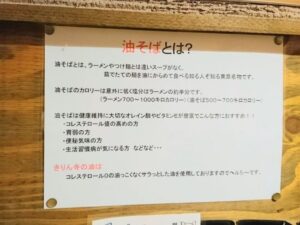 油そばとは?
油そばとは、ラーメンやつけ麺とは違いスープがなく、
茹でたての麺を油にからめて食べる知る人ぞ知る東京名物です。
油そばのカロリーは意外に低く塩分はラーメンの約半分です。
(ラーメン700~1000キロカロリー)(油そば500~700キロカロリー)
油そばは健康維持に大切なオレイン酸やビタミンEが豊富でこんな方におすすめ!!
・コレステロール値の高めの方
・胃弱の方
・便秘気味の方
・生活習慣病が気になる方 などなど・・・
きりん寺の油は
コレステロール0の油っこくなくサラっとした油を使用しておりますのでヘルシーです。